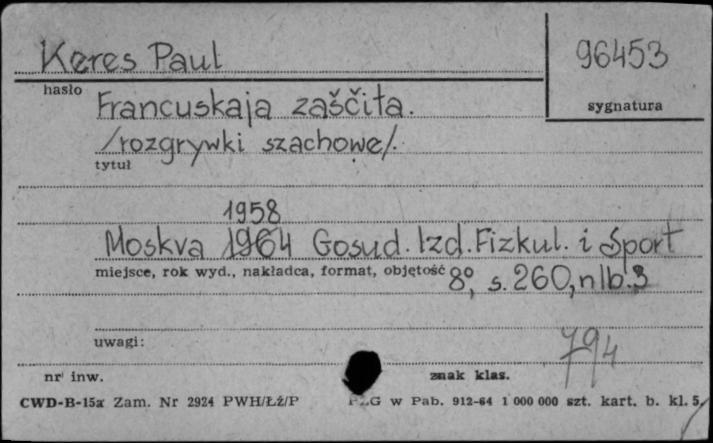 Keres Paul
96453
hasło
Francuskaja zaščita.
sygnatura
/rozgrywki szachowe/.
tytuł
1958
Moskva 1964 Gosud. Izd. Fizkul. i Sport
miejsce, rok wyd., nakładca, format, objętość 8°, s. 260, nlb. 3
uwagi:
794
nr inw.
znak klas.
CWD-B-15a Zam. Nr 2924 PWH/ŁŻ/P
w Pab. 912-64 1 000 000 szt. kart. b. kl. 5